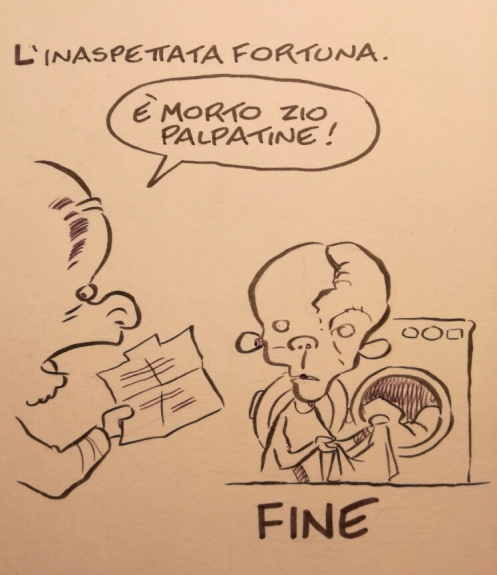 L'INASPETTATA FORTUNA.
È MORTO ZIO
PALPATINE!
FINE